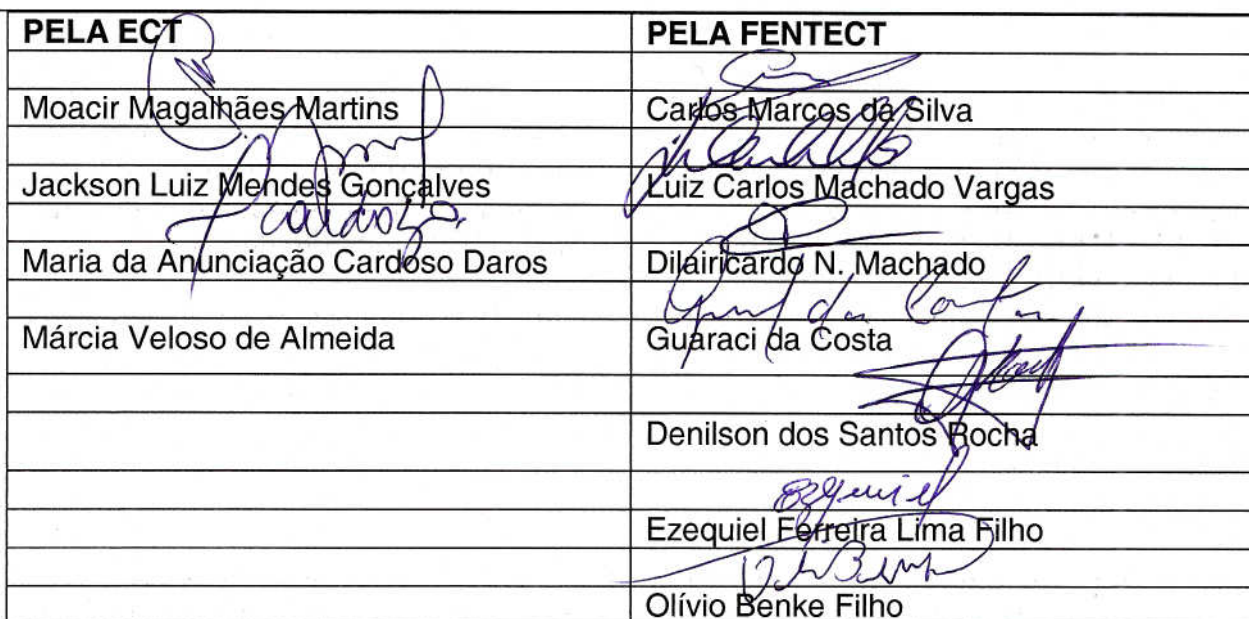 PELA ECT PELA FENTECT
Moacir Magalhães Martins Carlos Marcos da Silva
Jackson Luiz Mendes Gonçalves Luiz Carlos Machado Vargas
Cardoso
Maria da Anunciação Cardoso Daros Dilairicardo N. Machado
da Costa
Márcia Veloso de Almeida Guaraci da Costa
Denilson dos Santos Rocha
Ezequiel
Ezequiel Ferreira Lima Filho
Olívio Benke Filho